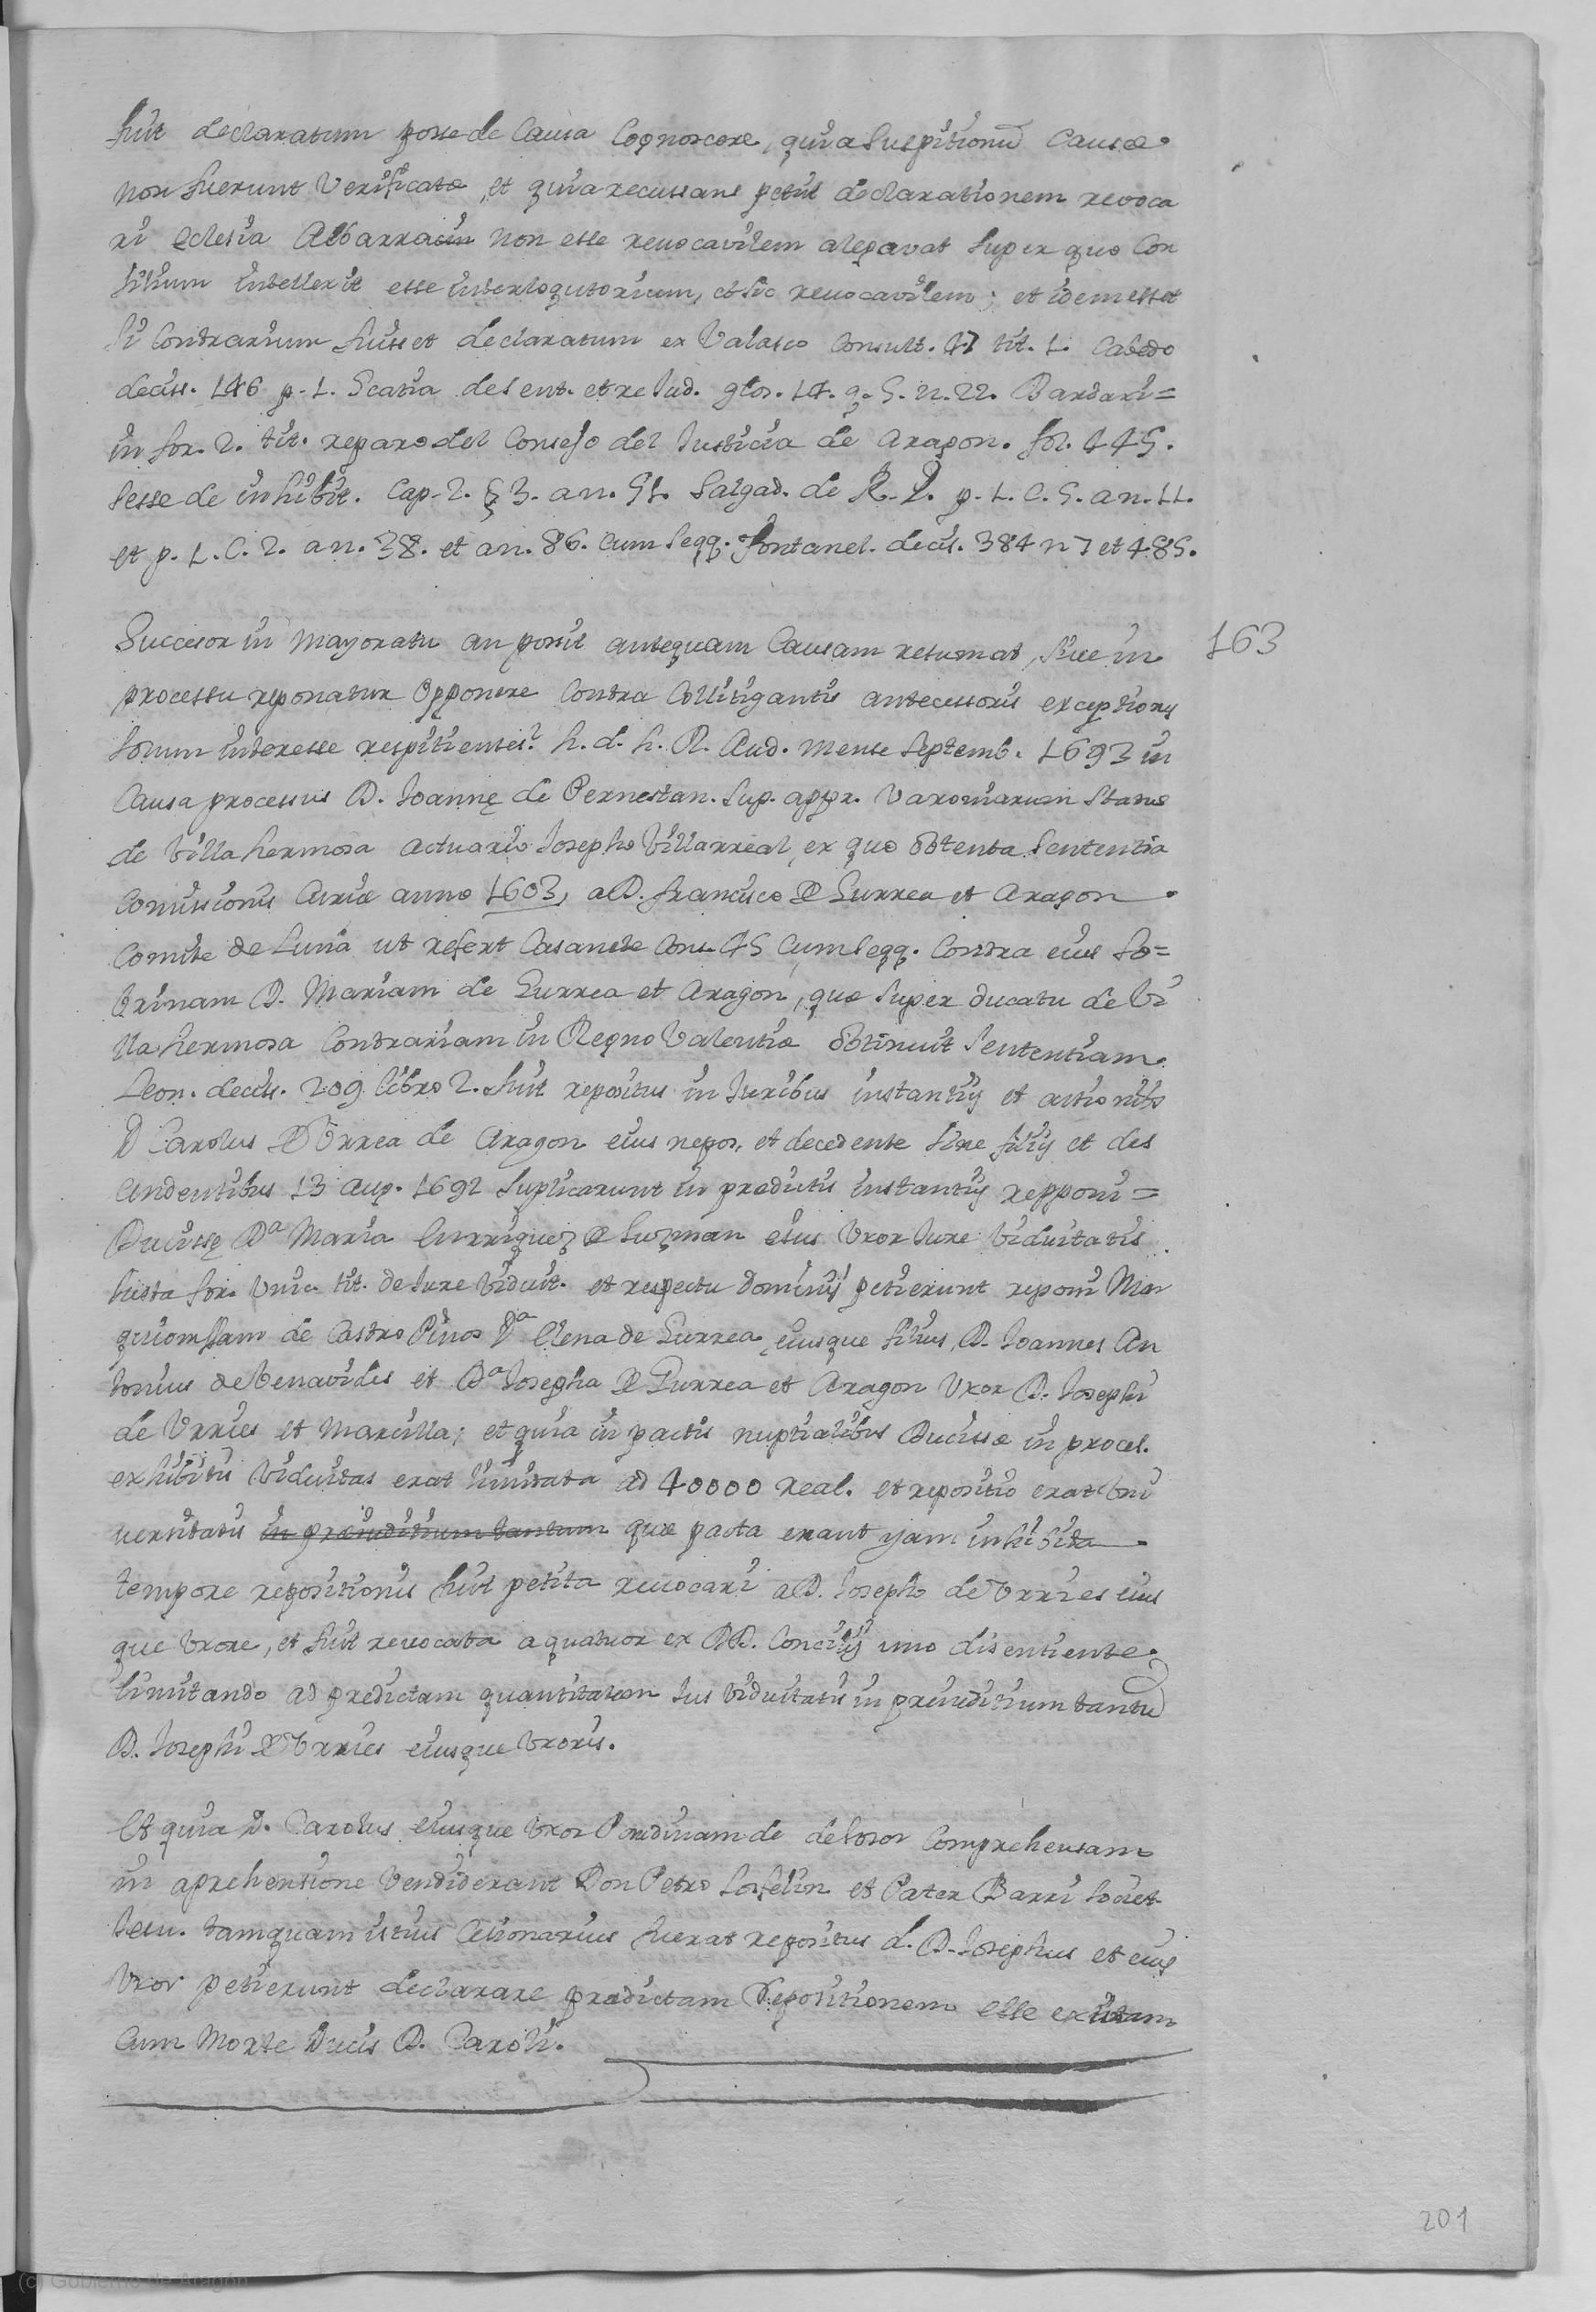 fuit declaratum posse de Causa Cognoscere, quia suspitionũ Causæ
non fuerunt Verificatæ, et quia recussans petiit declarationem revoca
ri Eclesia Albarracin non esse revocavilem alegavat super quo Con
silium intellexit esse interloqutorium, et sic revocavilem; et idem esset
si Contrarium fuisset declaratum ex Valasco Consult. 47 tit. 1. Cabedo
decis. 146 p. 1. Scacia de sent. et re Iud. glos. 14. q. 5. n. 22. Bardaxi=
in for. 2. tit. reparo del Consejo del Iusticia de Aragon. fol. 445.
Sesse de inhibit. Cap. 2. § 3. a n. 51. Salgad. de R. P. p. 1. C. 5. a n. 11.
et p. 1. C. 2. a n. 38. et a n. 86. cum seqq. Fontanel. decis. 384 n 7 et 485.
Succesor in Mayoratu an possit antequam Causam resumat, sive in 163
processu reponatur Opponere Contra Collitigantis antecessoris exceptiones
solum interesse respitientes? h. d. h. R. Aud. mense Septemb. 1693 in
Causa processus D. Ioannę de Pernestan. sup. appr. Varoniarum Status
de Villa hermosa actuario Iosepho Villarreal, ex quo obtenta sententia
Comissionis Curiæ anno 1603, a D. francisco de Gurrea et Aragon
Comite de Luna ut refert Casanate Cons. 45 cum seqq. Contra eius so=
brinam D. Mariam de Gurrea et Aragon, quæ super ducatu de Vi
lla hermosa Contrariam in Regno Valentiæ obtinuit sententiam
Leon. decis. 209 libro 2. fuit repositus in Iuribus instantijs et actionibs
D Carolus de Vrrea de Aragon eius nepos, et decedente sine filijs et des
cendentibus 13 Aug. 1692 suplicarunt in predictis instantijs repponi=
Ducissę Dª Maria Enrriquez de Guzman eius Vxor Iure Viduitatis
iuxta for. Vnic. tit. de Iure Viduit. et respectu dominij petierunt reponi Mar
quionissam de Castro Pinos Dª Elena de Gurrea, eiusque filius, D. Ioannes An
tonius de Venavides et Dª Iosepha de Gurrea et Aragon Vxor D. Iosephi
de Vrries et Marcilla; et quia in pactis nuptialibus Ducissæ in proces.
exhibitis Viduitas erat limitata ad 40000 real. et repositio erat Vni
versitatis in præiuditium tantum quæ pacta erant yam inhibita
tempore repositionis fuit petita revocari a D. Iosepho de Vrries eius
que Vxore, et fuit revocata a quatuor ex DD. Concilij uno disentiente
limitando ad predictam quantitatem Ius Viduitatis in preiuditium tantũ
D. Iosephi de Vrries eiusque Vxoris.
Et quia D. Carolus eiusque Vxor Pardinam de Comprehensam
in aprehensione Vendiderant Don Petro et Pater Barri Societ
Iesu. tamquam istius fuerat repositus d. D. Iosephus et eius
Vxor petierunt declarare predictam Repositionem esse
Cum Morte Ducis D. Caroli.
201
(c) Gobierno de Aragón